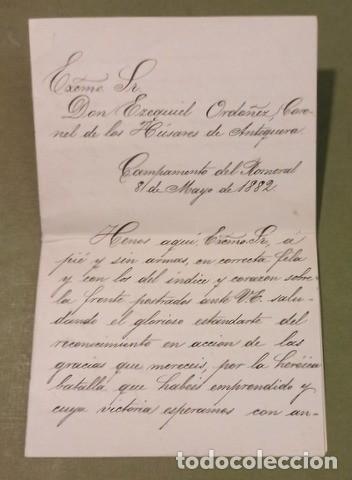 Exćmo. Sr.
Don Ezequiel Ordoñez, Coro-
nel de los Húsares de Antiquera
Campamento del Romeral
8/ de Mayo de 1882.
Henos aquí, Exćmo. Sr., á
pié y sin armas, en correcta fila
y con los del índice y corazon sobre
la frente, postrados ante V.E. salu-
dando el glorioso estandarte del
reconocimiento en accion de las
gracias que mereceis, por la heróica
batalla que habeis emprendido y
cuya victoria esperamos con an-
todocoleccion.net